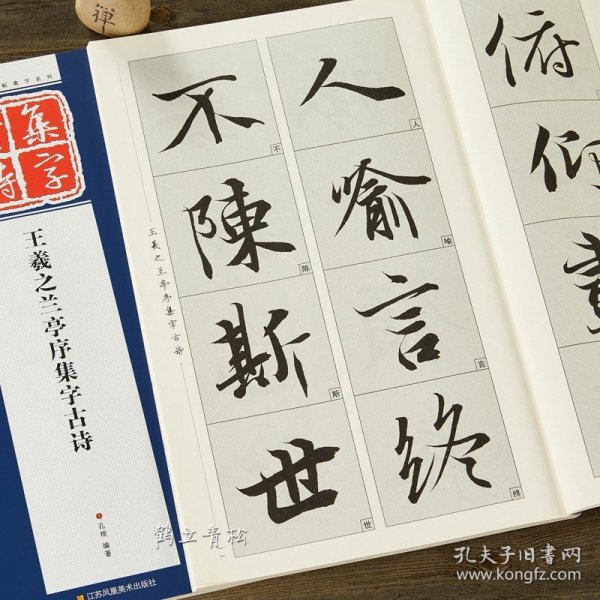 禅
集字
王羲之兰亭序集字古诗
编著
江苏凤凰美术出版社
俯仰
人喻言終
人
喻
言
终
不陳斯世
不
陈
斯
世
王羲之兰亭序集字古诗
鹤立青松
孔夫子旧书网
www.kongfz.com